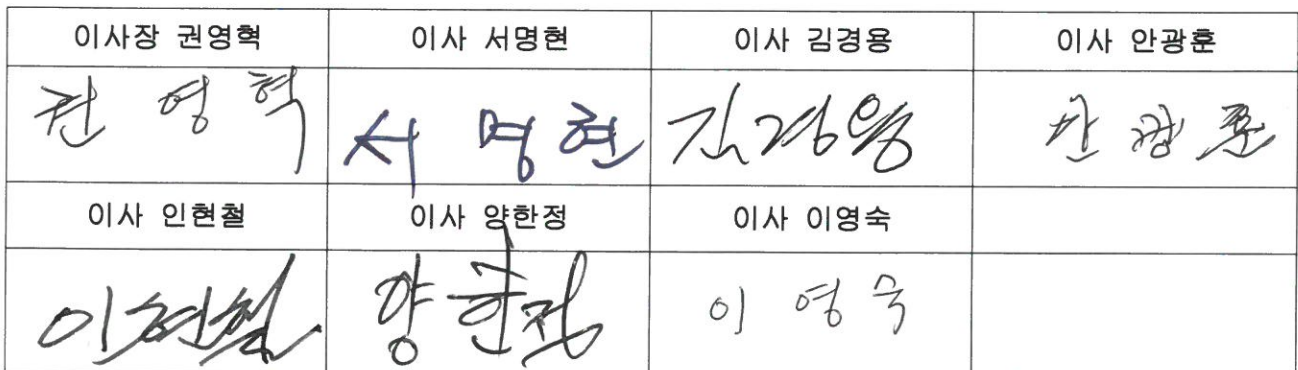 이사장 권영혁 이사 서명현 이사 김경용 이사 안광훈
권 영 혁 서 명 현 김경용 안 광 훈
이사 인현철 이사 양한정 이사 이영숙
인현철 양한정 이 영 숙